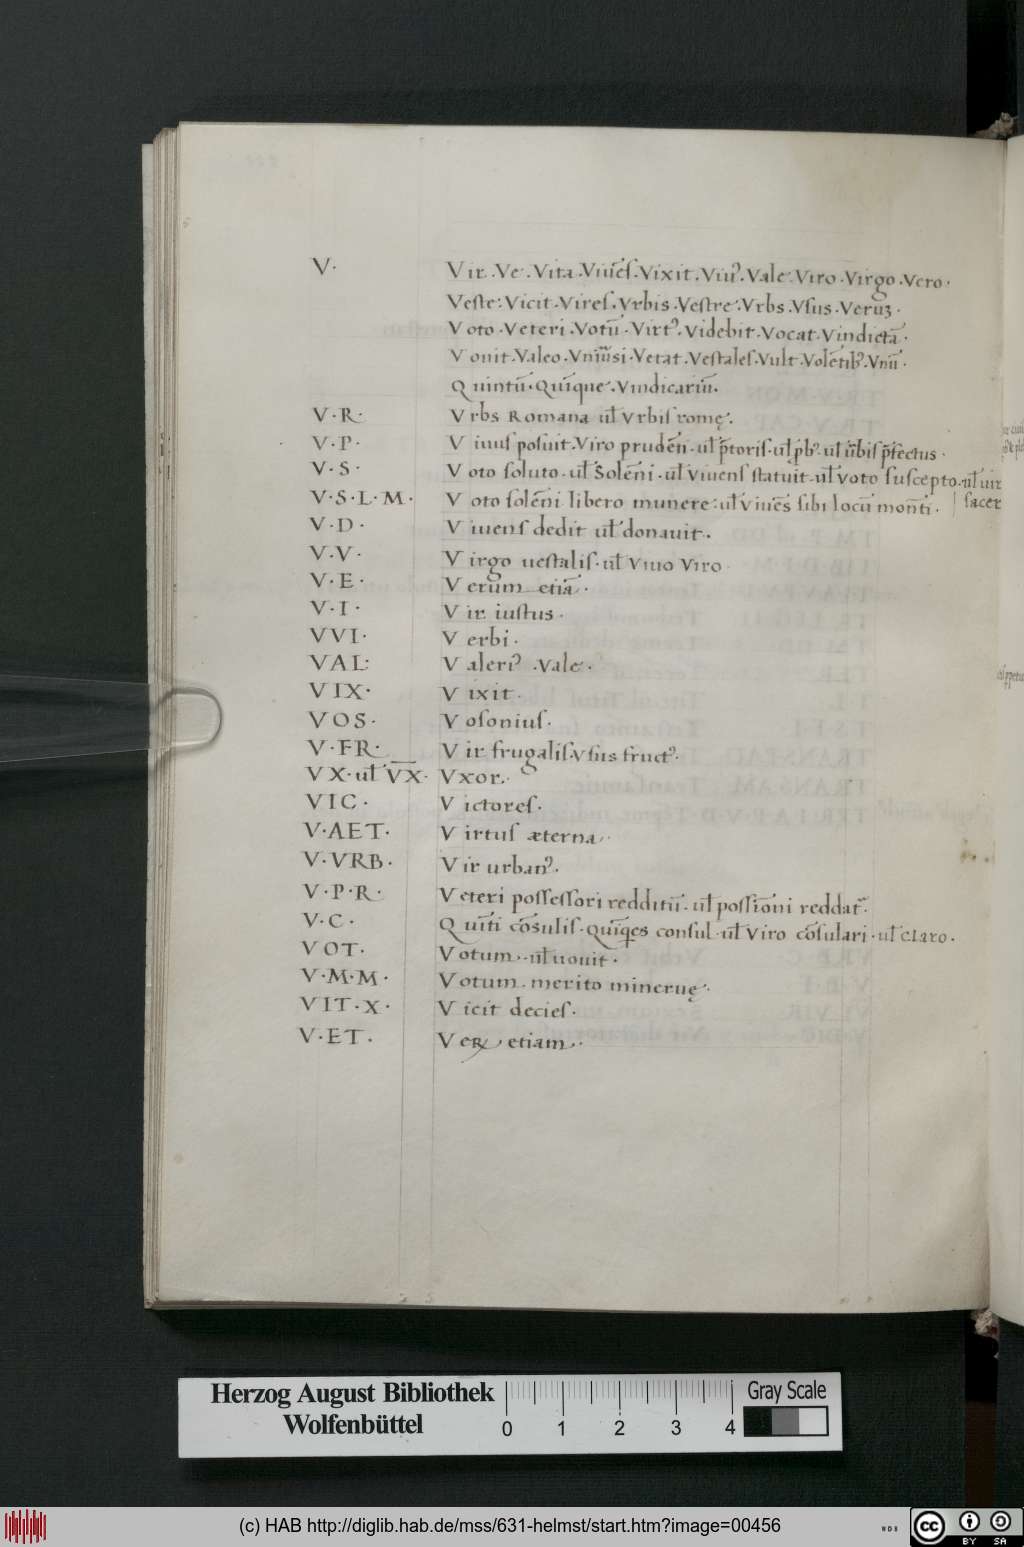 V· Vir·Ve·Vita·Viue͞s·Vixit·Viuꝰ·Vale·Viro·Virgo·Vero·
Veste:Vicit·Vires·Vrbis·Vestre·Vrbs·Vsus·Veruȝ·
Voto·Veteri·Votū·Virtꝰ·Videbit·Vocat·Vindictā·
Vouit·Valeo·Vniūsi·Vetat·Vestales·Vult·Volētibꝰ·Vnū·
Quintū·Quīque·Vindicariū·
V·R· Vrbs Romana ul̄ vrbis romę·
V·P· Viuus posuit·Viro prudēn·ul̄ p̄toris·ul̄ p̄bꝰ·ul̄ ūbis p̄fectus·
V·S· Voto soluto·ul̄ Solēni·ul̄ viuens statuit·ul̄ voto suscepto·ul̄ uir
V·S·L·M· Voto solēni libero munere:ul̄ viuēs sibi locū monīti· | sacer
V·D· Viuens dedit ul̄ donauit·
V·V· Virgo uestalis·ul̄ viuo viro
V·E· Verum etiā·
V·I· Vir iustus·
VVI· Verbi·
VAL: Valeriꝰ·Vale·
VIX· Vixit·
VOS· Vosonius·
V·FR· Vir frugalis·vsus fructꝰ·
VX·ul̄ V̄X̄· Vxor·
VIC· Victores·
V·AET· Virtus æterna·
V·VRB· Vir urbanꝰ·
V·P·R· Veteri possessori redditū·ul̄ possīoni reddat᷑·
V·C· Quīti cōsulis·quīq̄es consul·ul̄ viro cōsulari·ul̄ claro·
VOT· Votum·ul̄ uouit·
V·M·M· Votum merito mineruę·
VIT·X· Vicit decies·
V·ET· Veꝝ etiam·
Herzog August Bibliothek
Wolfenbüttel
0 1 2 3 4
Gray Scale
(c) HAB http://diglib.hab.de/mss/631-helmst/start.htm?image=00456
WDB
cc BY SA